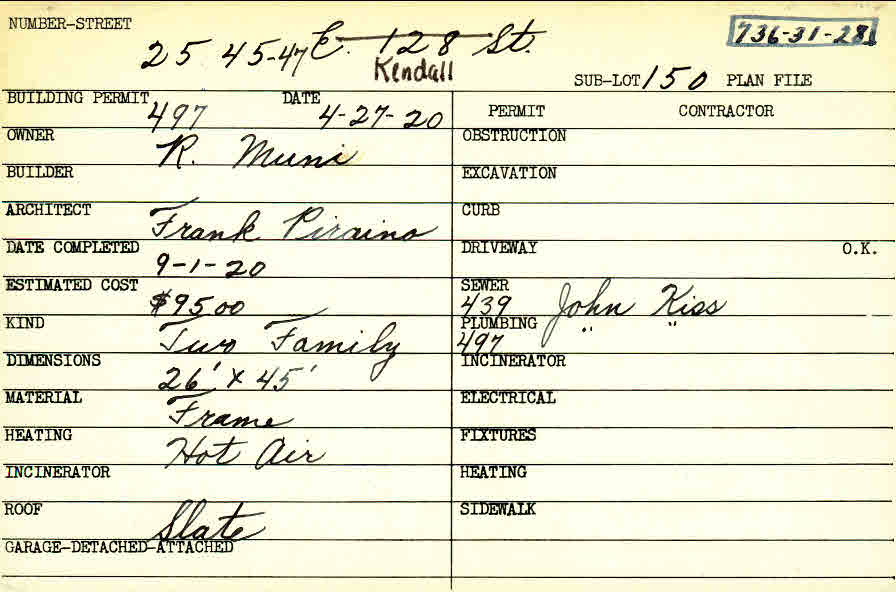 NUMBER-STREET
2545-47 E. 128 St.
Kendall
736-31-28
SUB-LOT 150 PLAN FILE
BUILDING PERMIT 497 DATE 4-27-20
OWNER R. Muni
BUILDER
ARCHITECT Frank Piraino
DATE COMPLETED 9-1-20
ESTIMATED COST $9500
KIND Two Family
DIMENSIONS 26' x 45'
MATERIAL Frame
HEATING Hot Air
INCINERATOR
ROOF Slate
GARAGE-DETACHED-ATTACHED
PERMIT CONTRACTOR
OBSTRUCTION
EXCAVATION
CURB
DRIVEWAY O.K.
SEWER 439 John Kiss
PLUMBING 497 " "
INCINERATOR
ELECTRICAL
FIXTURES
HEATING
SIDEWALK